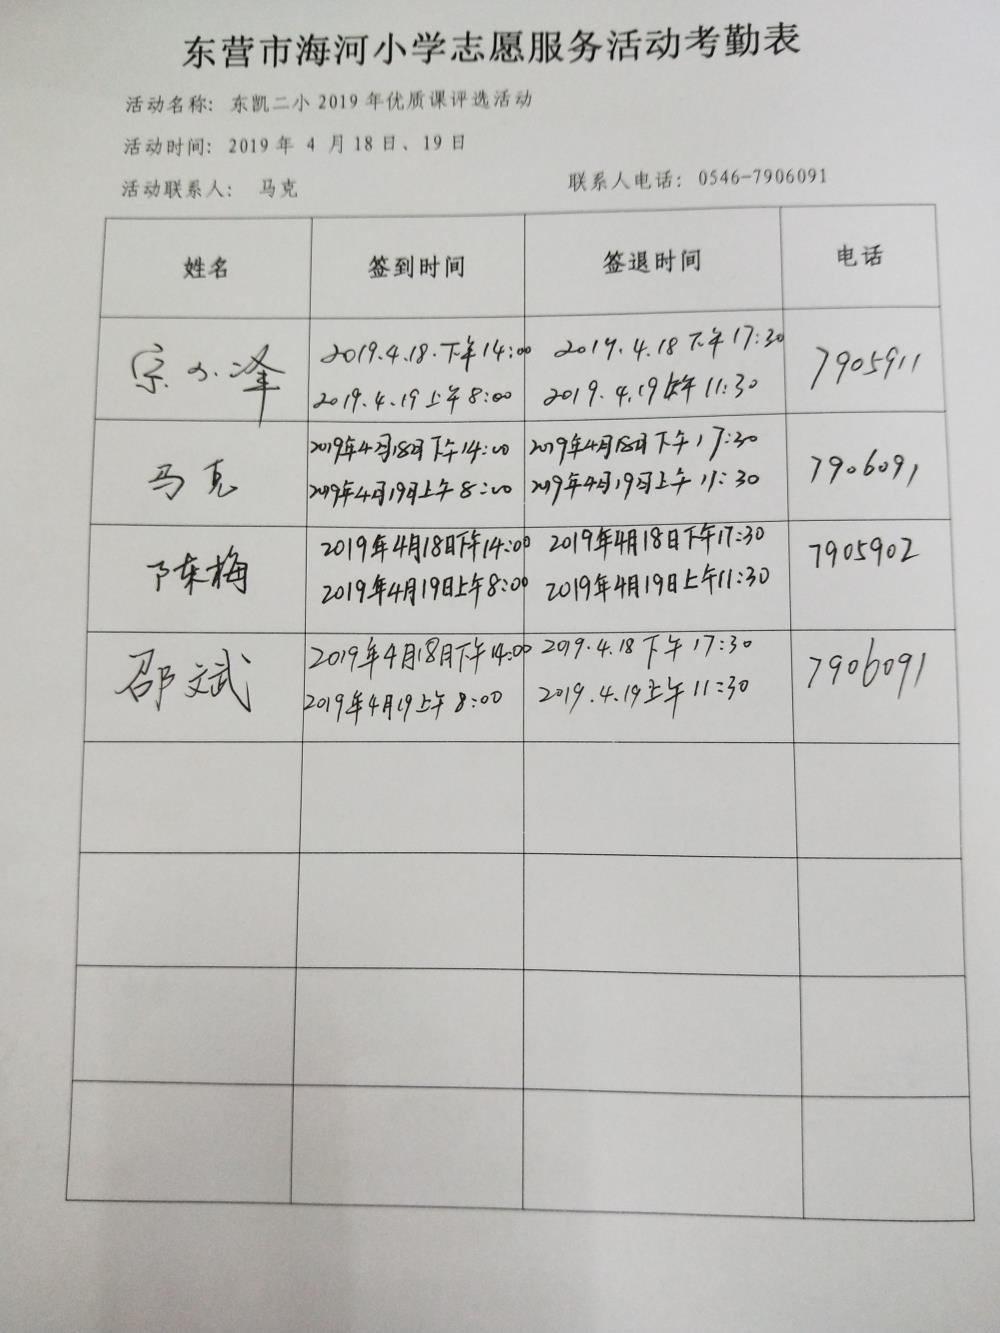 东营市海河小学志愿服务活动考勤表
活动名称：东凯二小2019年优质课评选活动
活动时间：2019年 4 月18日、19日
活动联系人： 马克 联系人电话：0546-7906091
姓名 签到时间 签退时间 电话
宗小泽 2019.4.18.下午14:00 2019.4.18下午17:30 7905911
2019.4.19上午8:00 2019.4.19上午11:30
马克 2019年4月18日下午14:00 2019年4月18日下午17:30 7906091
2019年4月19日上午8:00 2019年4月19日上午11:30
陈梅 2019年4月18日下午14:00 2019年4月18日下午17:30 7905902
2019年4月19日上午8:00 2019年4月19日上午11:30
邵斌 2019年4月18日下午14:00 2019.4.18下午17:30 7906091
2019年4月19上午8:00 2019.4.19上午11:30